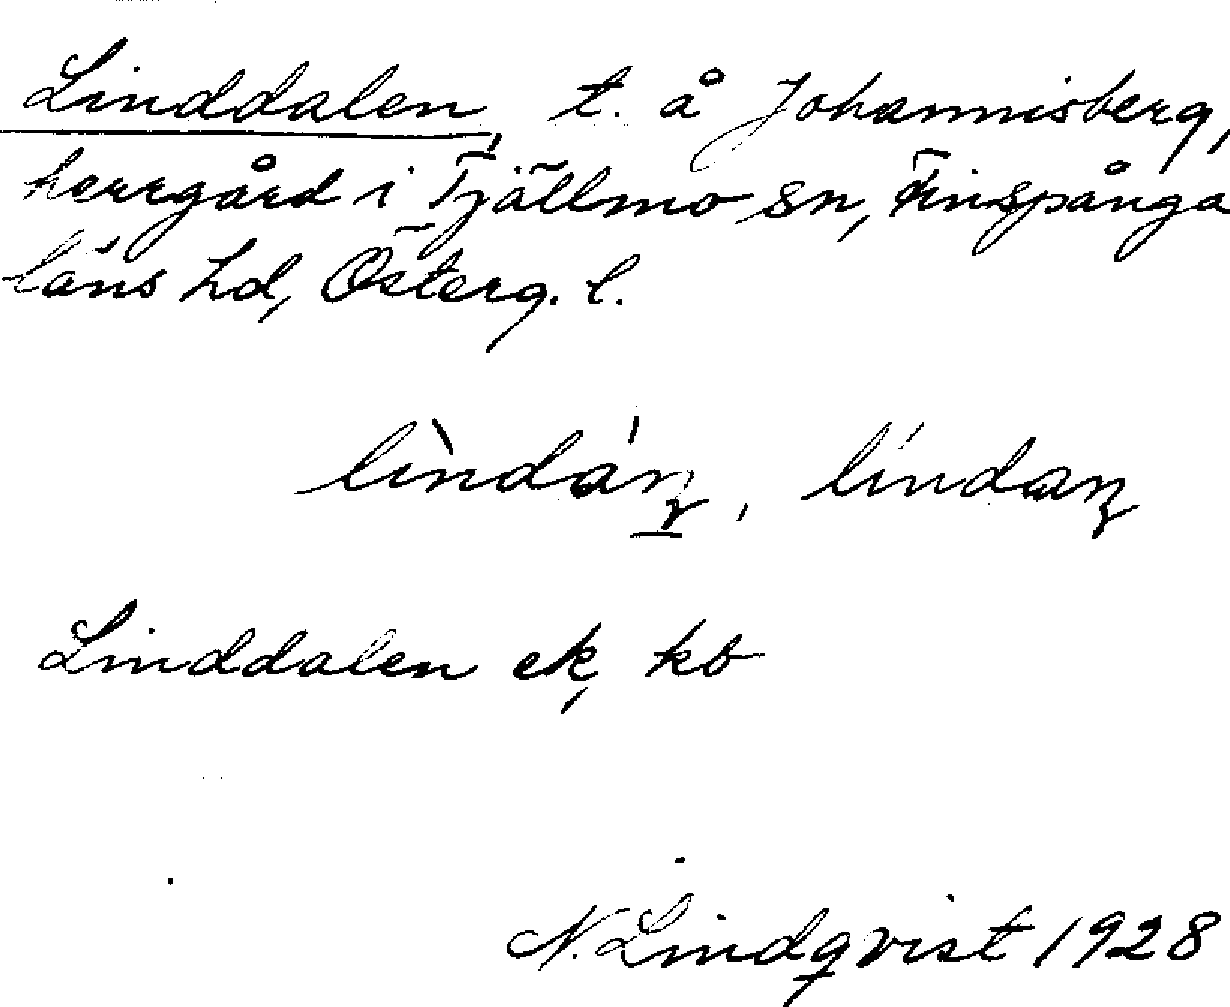 Linddalen, t. å Johannisberg,
herrgård i Tjällmo sn, Finspånga
läns hd, Österg. l.
Linddalen ek, kb
N. Lindqvist 1928